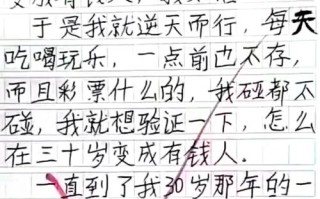 于是我就逆天而行，每天
吃喝玩乐，一点前也不存，
而且彩票什么的，我碰都不
碰，我就想验证一下，怎么
在三十岁变成有钱人．
一直到了我30岁那年的一